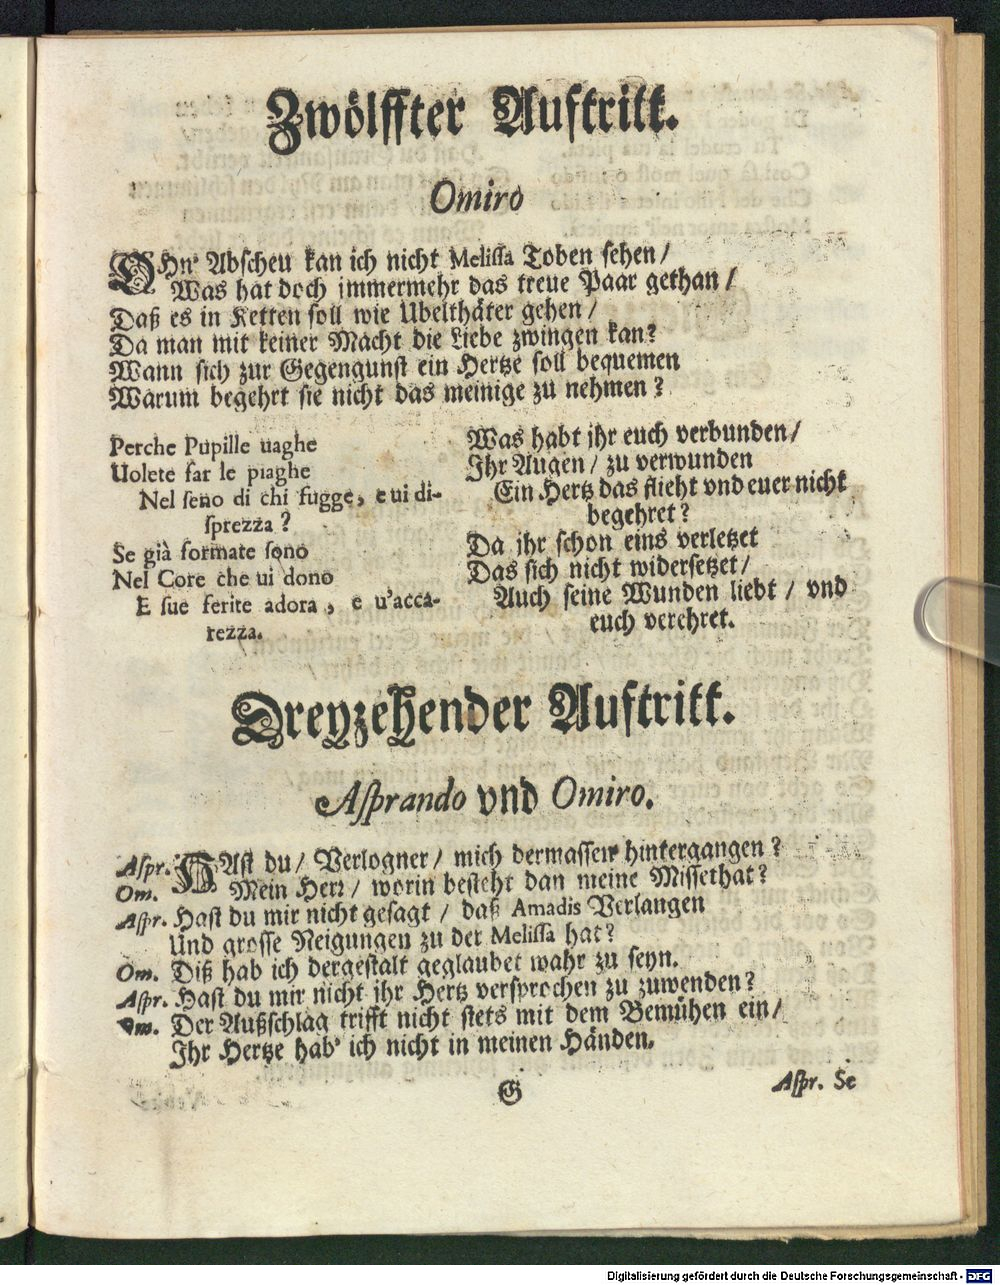 Zwölffter Auftritt.
Omiro
OHn' Abscheu kan ich nicht Melissa Toben sehen /
Was hat doch immermehr das treue Paar gethan /
Daß es in Ketten soll wie Ubelthäter gehen /
Da man mit keiner Macht die Liebe zwingen kan?
Wann sich zur Gegengunst ein Hertze soll bequemen
Warum begehrt sie nicht das meinige zu nehmen?
Perche Pupille uaghe
Uolete far le piaghe
Nel seno di chi fugge, e ui di-
sprezza?
Se già formate sono
Nel Core che ui dono
E sue ferite adora, e u'acca-
rezza.
Was habt jhr euch verbunden /
Jhr Augen / zu verwunden
Ein Hertz das flieht vnd euer nicht
begehret?
Da jhr schon eins verletzet
Das sich nicht widersetzet /
Auch seine Wunden liebt / vnd
euch verehret.
Dreyzehender Auftritt.
Asprando vnd Omiro.
Aspr. HAst du / Verlogner / mich dermassen hintergangen?
Om. Mein Herr / worin besteht dan meine Missethat?
Aspr. Hast du mir nicht gesagt / daß Amadis Verlangen
Und grosse Neigungen zu der Melissa hat?
Om. Diß hab ich dergestalt geglaubet wahr zu seyn.
Aspr. Hast du mir nicht jhr Hertz versprochen zu zuwenden?
Om. Der Außschlag trifft nicht stets mit dem Bemühen ein /
Jhr Hertze hab' ich nicht in meinen Händen.
G
Aspr. Se
Digitalisierung gefördert durch die Deutsche Forschungsgemeinschaft - DFG